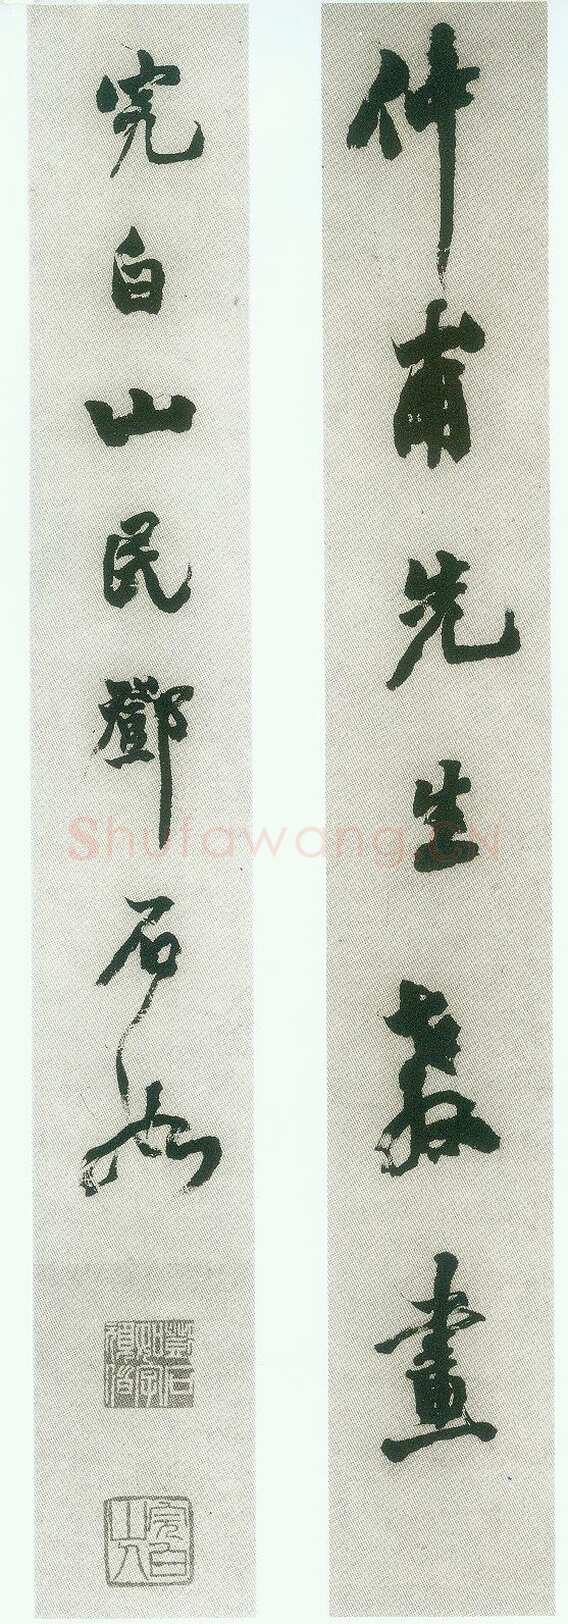 仲甫先生教畫
完白山民鄧石如
完白山人
Shufawang.CN